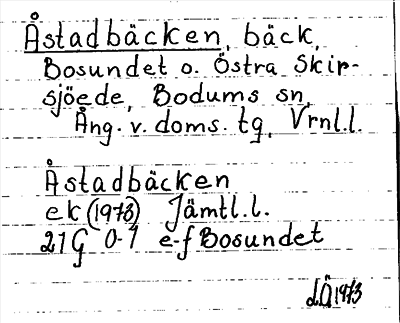 Åstadbäcken, bäck,
Bosundet o. Östra Skir-
sjöede, Bodums sn,
Ång. v. doms. tg, Vrnl.l.
Åstadbäcken
ek (1973) Jämtl.l.
21G 0-1 e-f Bosundet
dÅ 1973